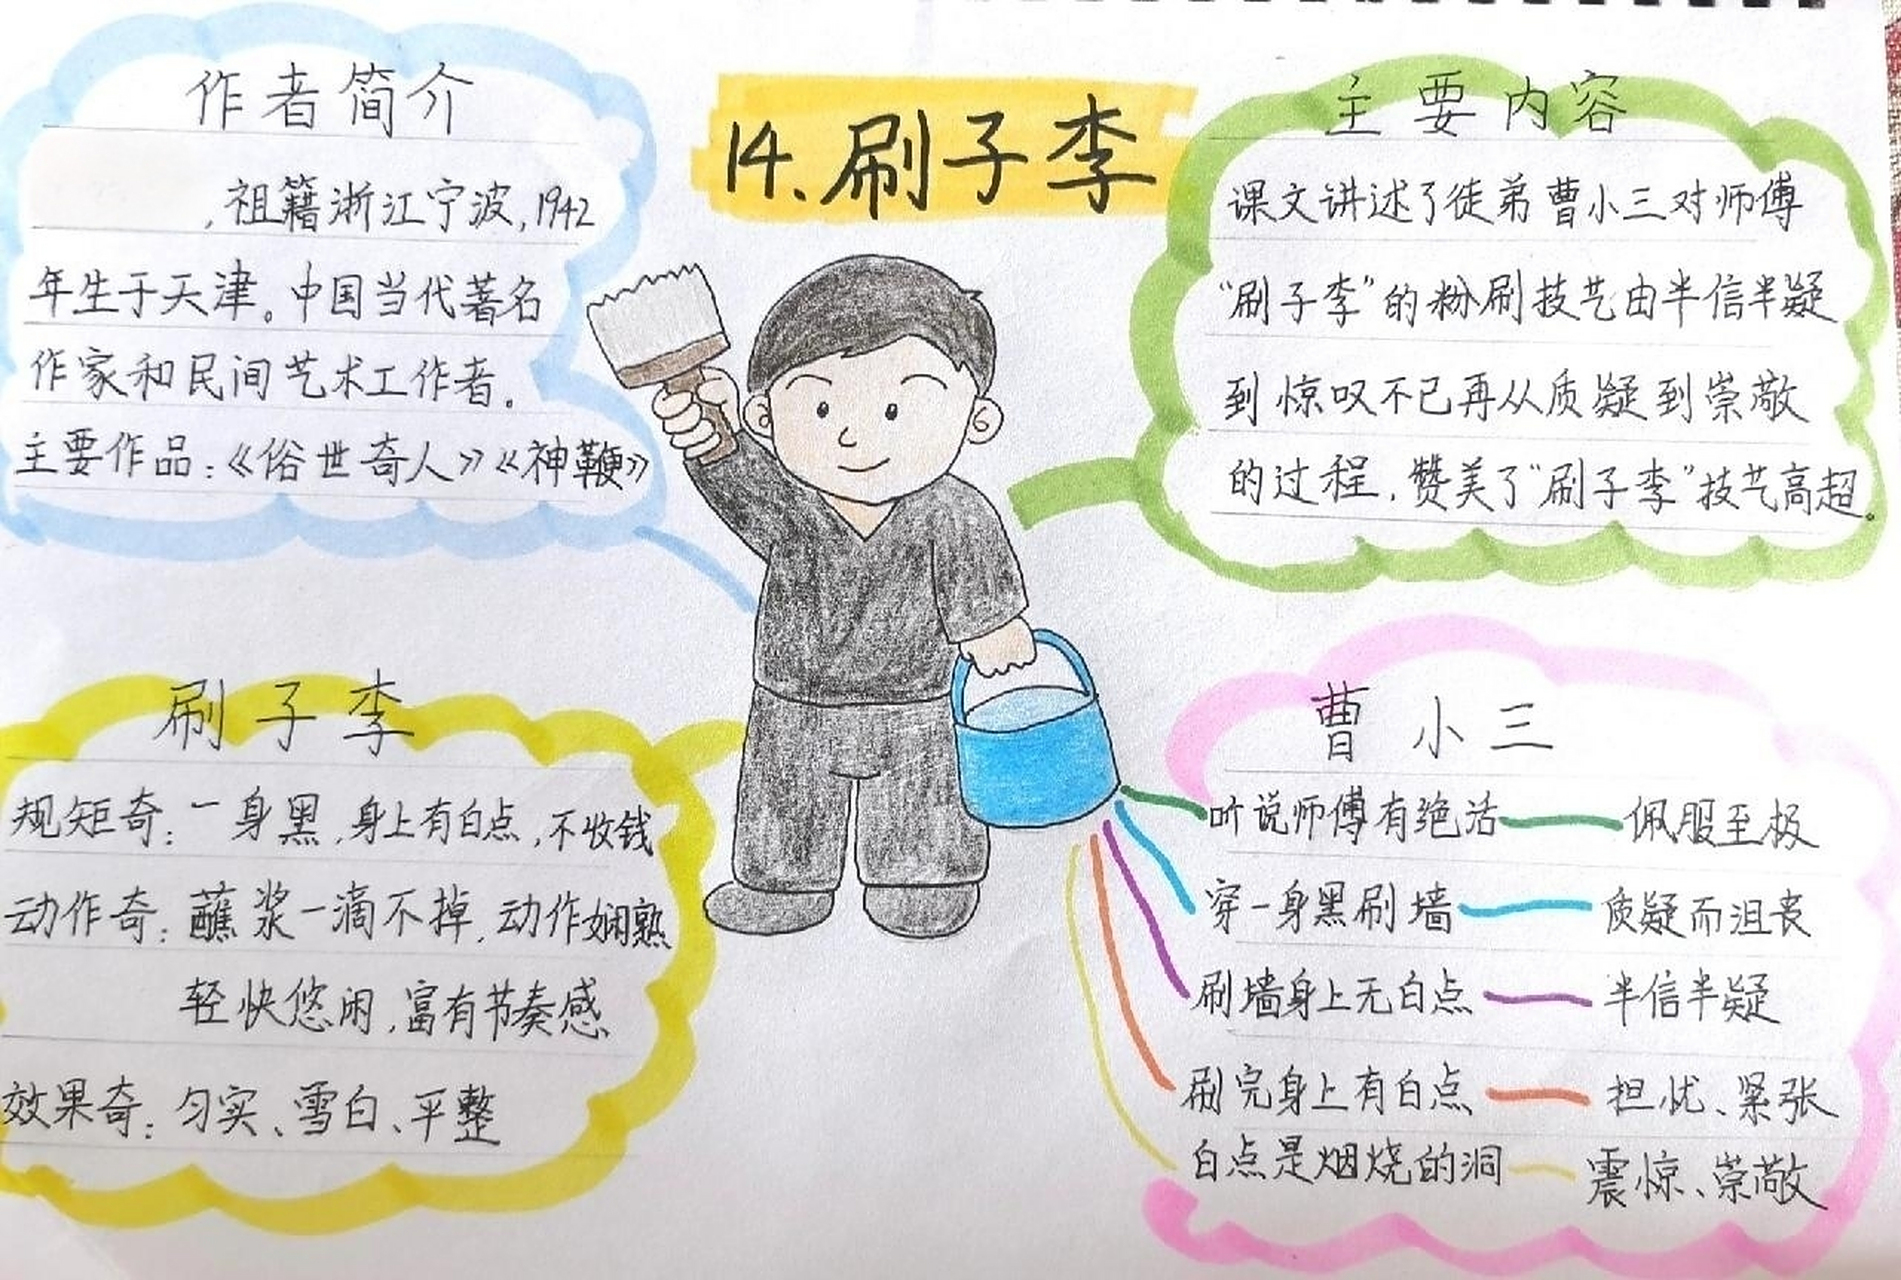 14.刷子李
作者简介
,祖籍浙江宁波,1942
年生于天津。中国当代著名
作家和民间艺术工作者。
主要作品:《俗世奇人》《神鞭》
主要内容
课文讲述了徒弟曹小三对师傅
“刷子李”的粉刷技艺由半信半疑
到惊叹不已再从质疑到崇敬
的过程,赞美了“刷子李”技艺高超。
刷子李
规矩奇:一身黑,身上有白点,不收钱
动作奇:蘸浆一滴不掉,动作娴熟
轻快悠闲,富有节奏感
效果奇:匀实、雪白、平整
曹小三
听说师傅有绝活 佩服至极
穿一身黑刷墙 质疑而沮丧
刷墙身上无白点 半信半疑
刷完身上有白点 担忧、紧张
白点是烟烧的洞 震惊、崇敬